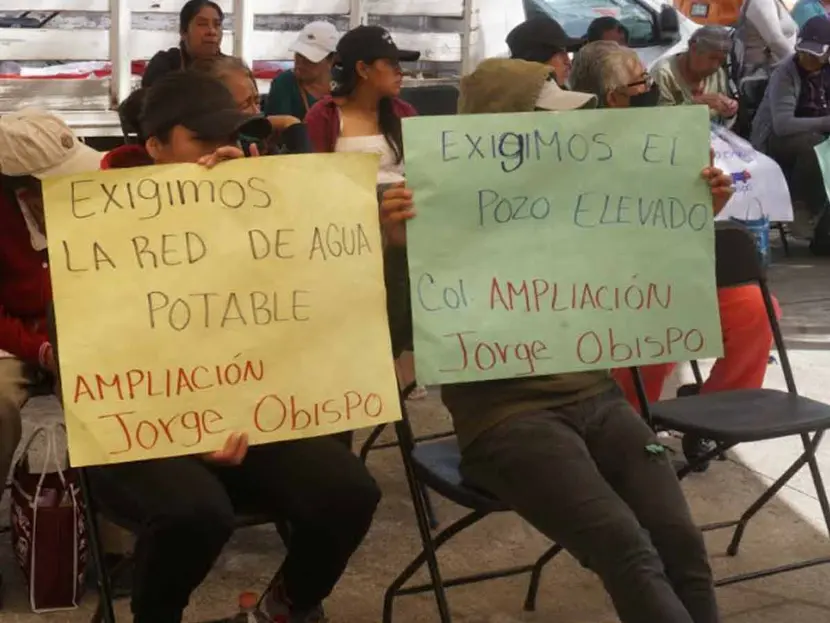 EXIgIMOS
LA RED DE AGUA
POTABLE
AMPLIACIÓN
Jorge OBISPO
EXIgIMOS EL
POZO ELEVADO
Col. AMPLIACIÓN
Jorge OBISPO